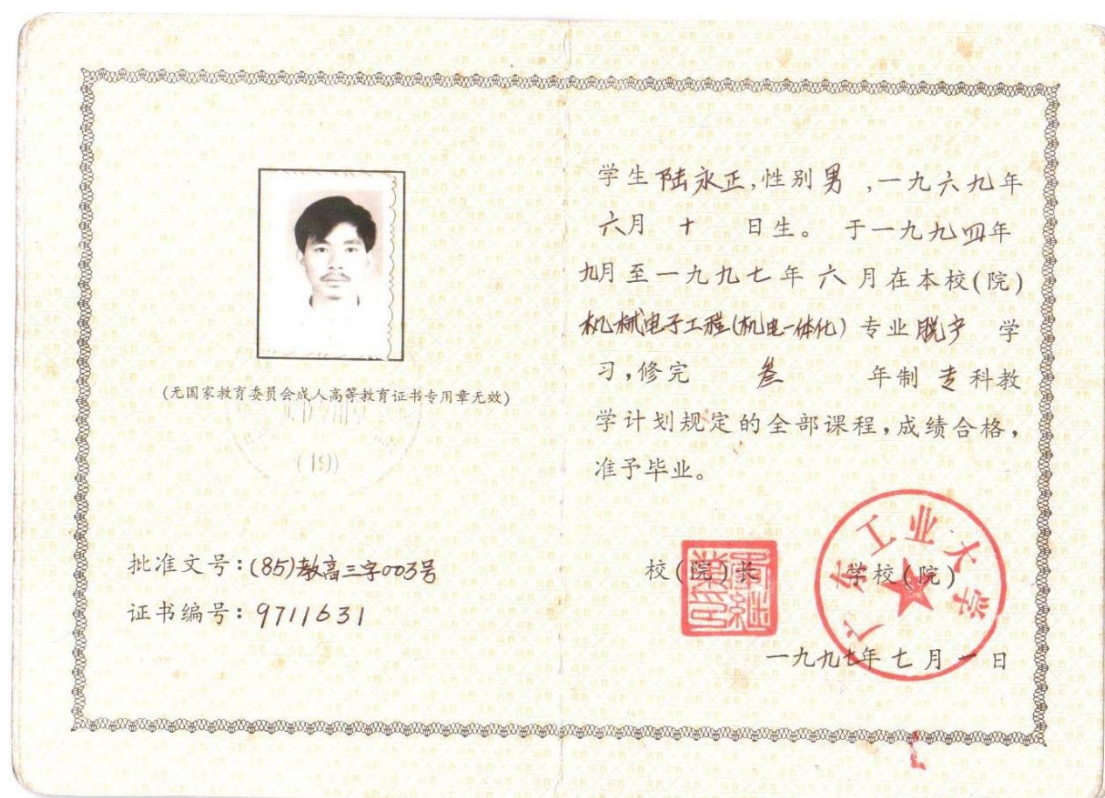 (无国家教育委员会成人高等教育证书专用章无效)
(19)
批准文号:(85)教高三字003号
证书编号:9711631
学生陆永正,性别男,一九六九年
六月十日生。于一九九四年
九月至一九九七年六月在本校(院)
机械电子工程(机电一体化)专业脱产学
习,修完叁年制专科教
学计划规定的全部课程,成绩合格,
准予毕业。
校(院)长
学校(院)
广东工业大学
一九九七年七月一日